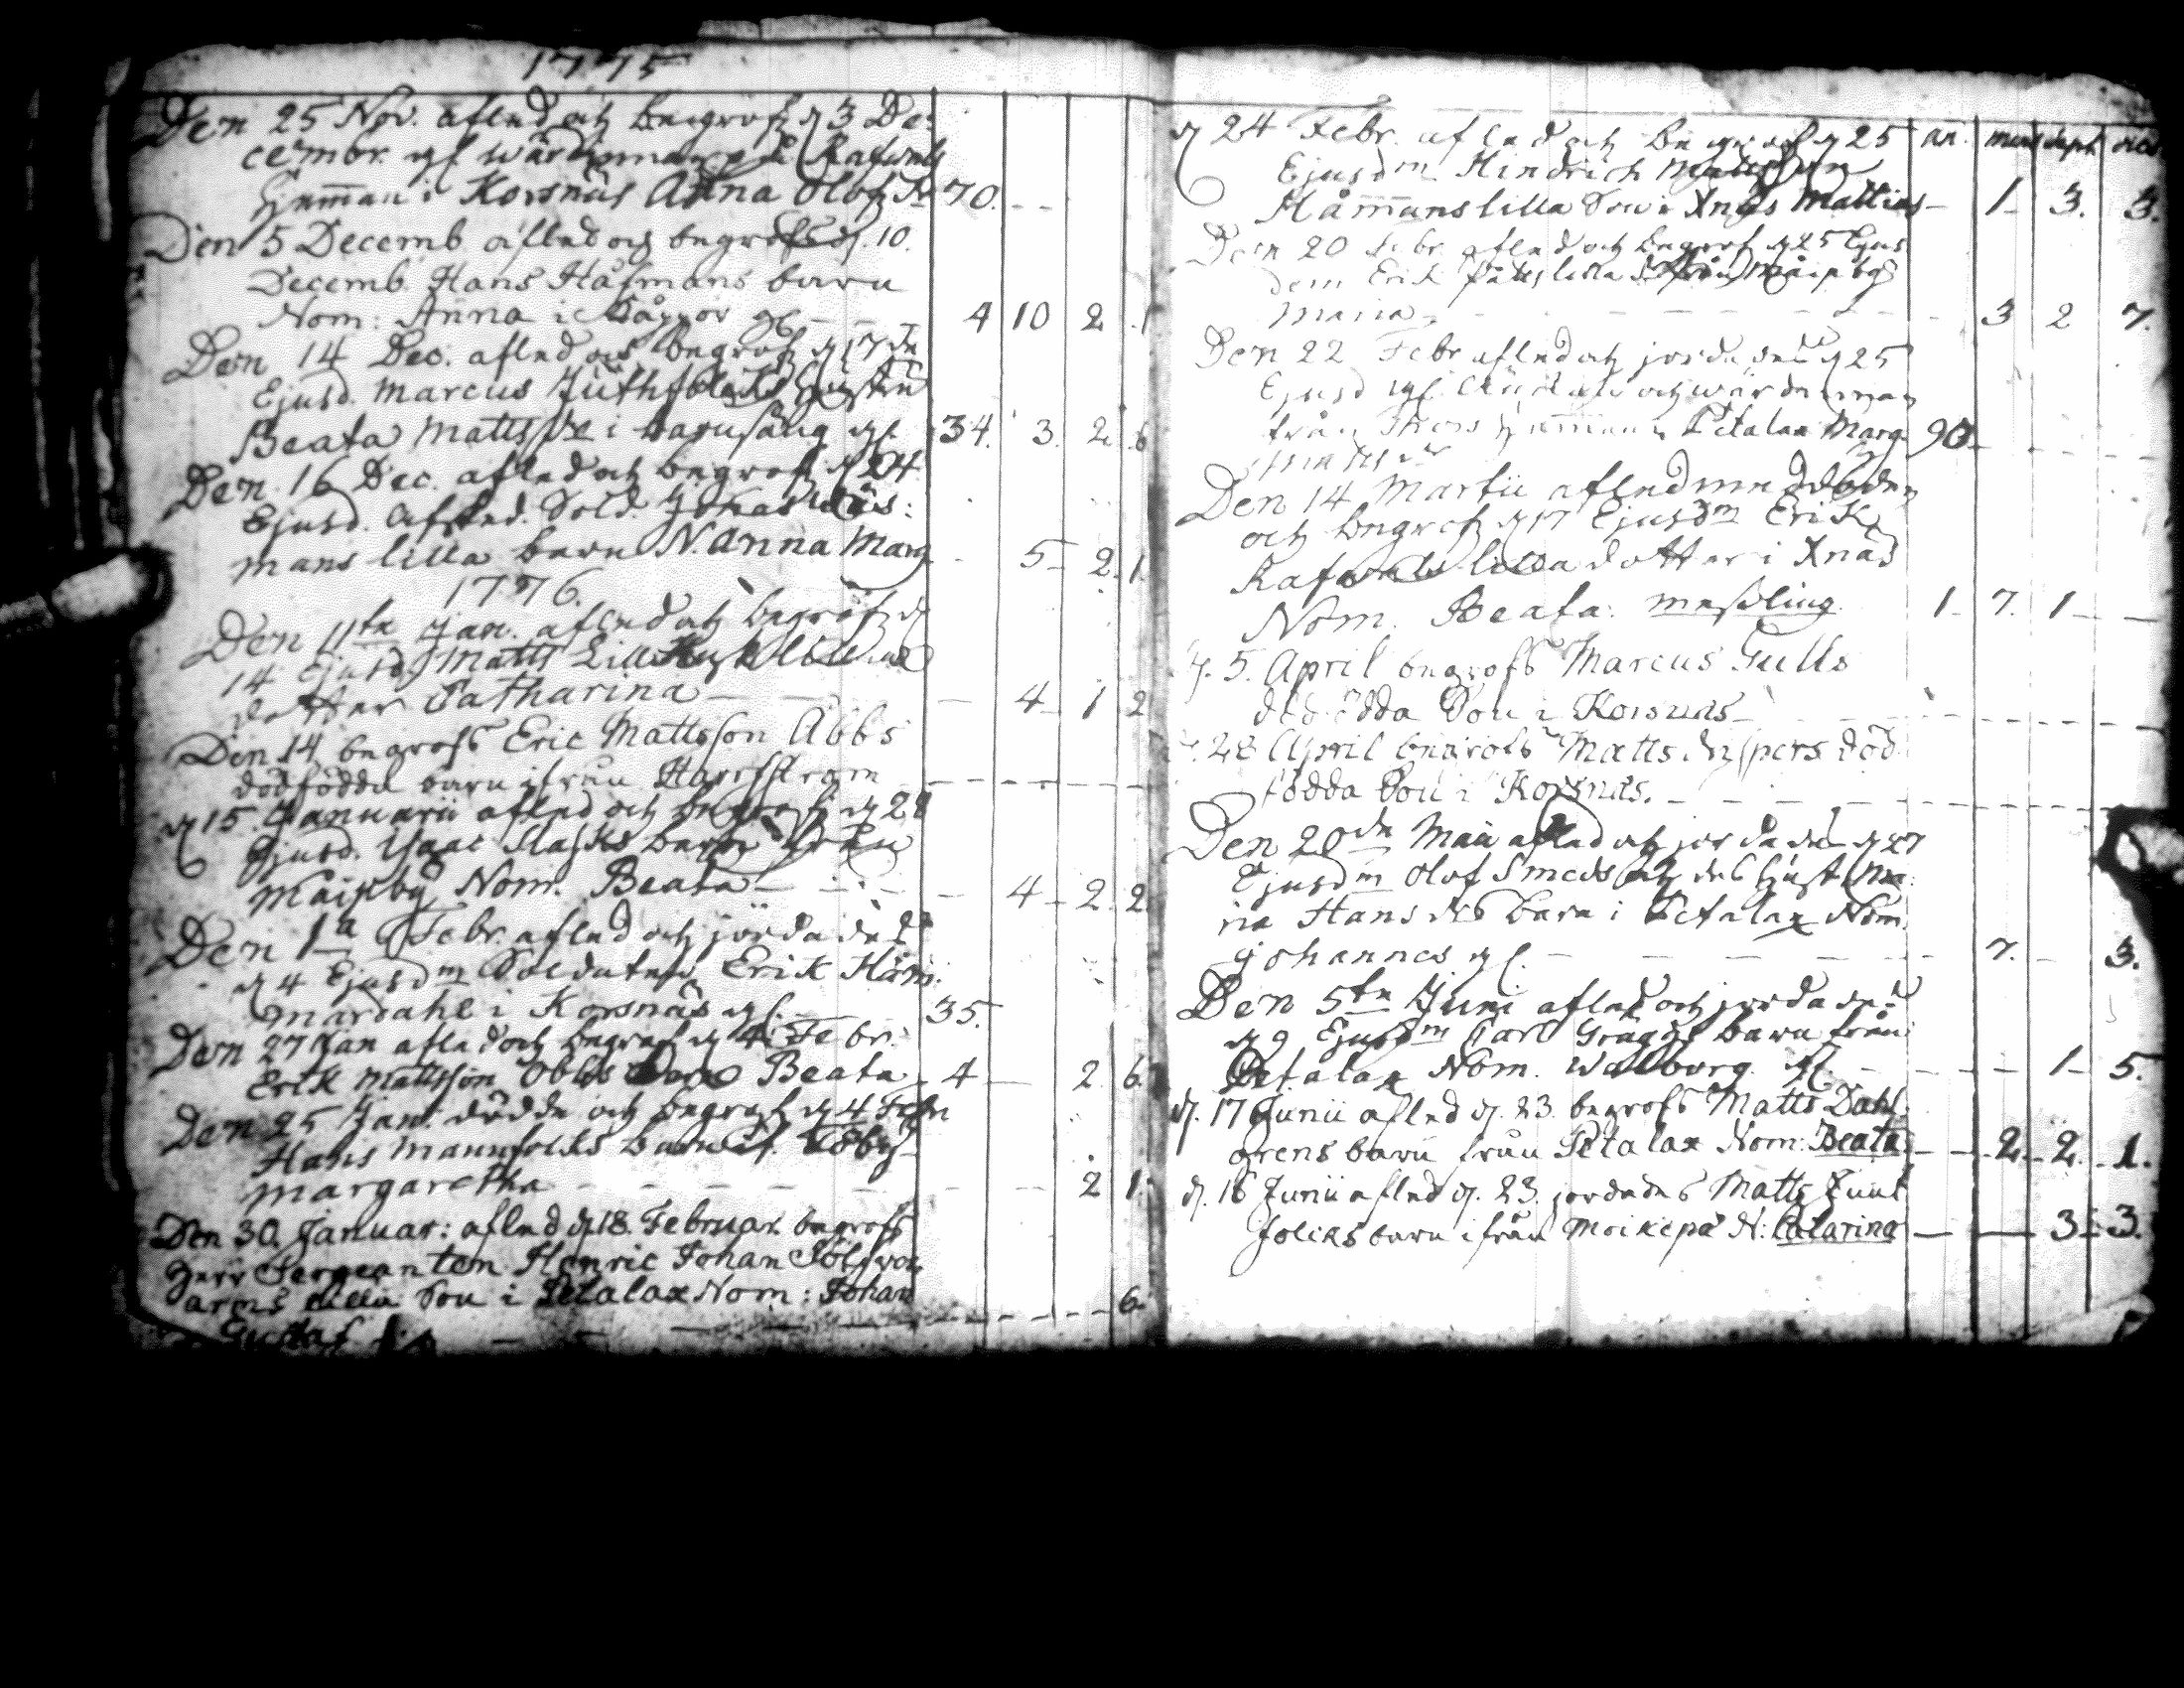 1775
Den 25 Nov. afled och begrofs d 3 De
cembr. gl. wärdinnan på Rafwals
hemman i Korsnäs Anna Olofs dr 70.
Den 5 Decemb afled och begrofs d. 10.
Decemb. Hans Håfmans barn
Nom: Anna i gl. 4 10 2 1
Den 14 Dec. afled och begrofs d 17 de
Ejusd. Marcus Juthfolcks hustru
Beata Matts dr i barnsäng gl. 34. 3. 2. 6
Den 16 Dec. afled och begrofs d 24
Ejusd. Afsked. Sold. Johas
mans lilla barn N. Anna Marg. - 5 - 2. 1.
1776.
Den 11te Jan. afled och begrofs d
14 Ejusd. Matts Lill
dotter Catharina — 4 - 1 2
Den 14 begrofs Eric Mattsson Abbs
dödfödda barn ifrån Harfström
d 15 Januarii afled och begrofs d 28
Ejusd. Isaac Slasks barn från
Maipby Nom. Beata — 4 - 2. 2
Den 1a Febr. afled och jordades
d 4 Ejusdm Soldaten Erik Ham
mardahl i Korsnäs gl. 35.
Den 27 Jan afled och begrofs d 4 Febr.
Erik Mattsson Obbs barn Beata 4 — 2. 6.
Den 25 Jan. dödde och begrofs d 4 Febr
Hans Mannfolcks barn if. Töby
Margaretha — 2 1.
Den 30. Januar: afled d 18 Februar. begrofs
Herr Sergeanten Henric Johan
arms lilla Son i Petalax Nom: Johan
Gustaf — 6.
d 24 Febr. afled och begrofs d 25 an. mens sept. dies
Ejusdm Hindrich Mattsson
Håmans lilla Son i Xnäs Mattias — 1 - 3. 3.
Den 20 Febr afled och begrofs d 25 Ejus
dem Erik lilla från Maipby
Maria — 3 2 7.
Den 22 Febr afled och jordades d 25
Ejusd gl. och wärdinnan
från Thors hemman i Petalax Marg. 90.
Den 14 Martii afled med döden
och begrofs d 17 Ejusdm Erik
Rafwals lilla dotter i Xnäs
Nom. Beata. messling. 1 - 7. 1 —
d. 5. April begrofs Marcus Gulls
dödfödda Son i Korsnäs —
d. 28 April begrofs Matts Jespers död
födda Son i Korsnäs. —
Den 20de Maii afled och jordades d 27
Ejusdm Olof Smeds och des hust. Ma
ria Hans drs barn i Petalax Nom.
Johannes gl. — 7. — 3.
Den 5te Juni afled och jordades
d 9 Ejusdm Carl Gräggs barn från
Petalax Nom. Walborg. gl. — 1 - 5.
d. 17 Junii afled d. 23. begrofs Matts Dahl
grens barn från Petalax Nom: Beata — 2. - 2. - 1.
d. 18 Junii afled d. 23. jordades Matts Juut
folcks barn ifrån Moikipä N: Catarina — — 3 - 3.